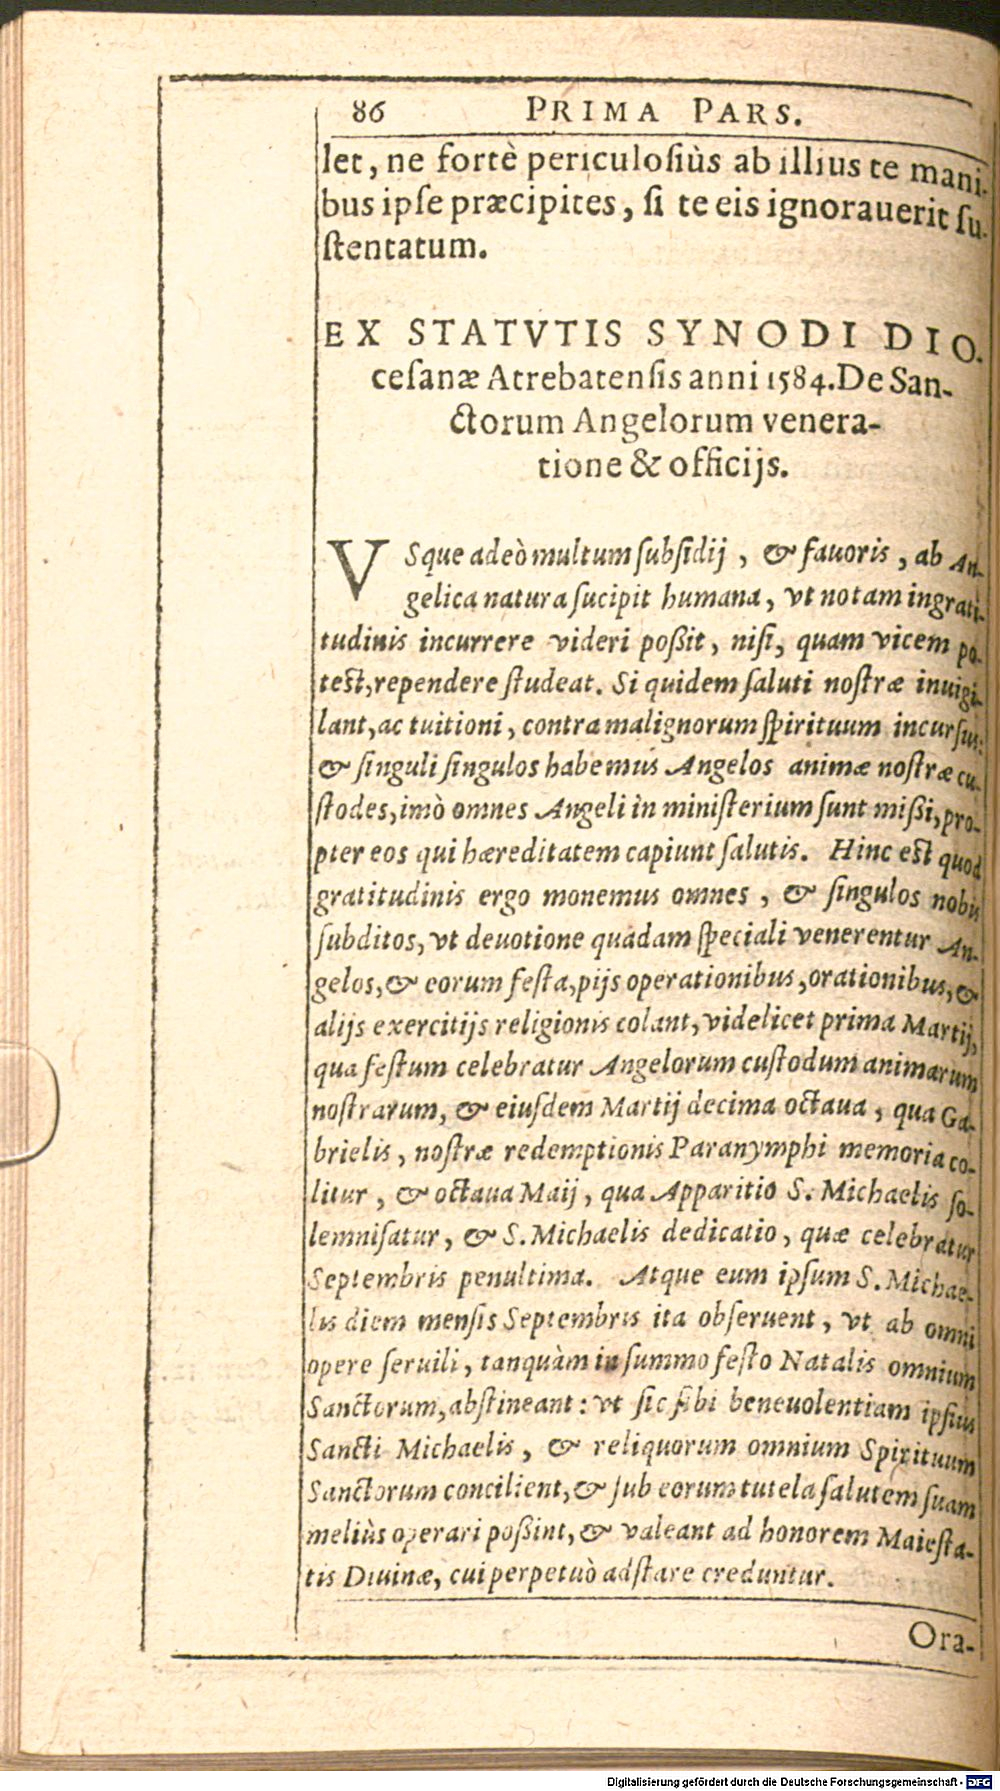 86 PRIMA PARS.
let, ne fortè periculosiùs ab illius te mani-
bus ipse præcipites, si te eis ignorauerit su-
stentatum.
EX STATVTIS SYNODI DIO-
cesanæ Atrebatensis anni 1584. De San-
ctorum Angelorum venera-
tione & officijs.
VSque adeò multum subsidij, & fauoris, ab An-
gelica natura sucipit humana, vt notam ingrati-
tudinis incurrere videri possit, nisi, quam vicem po-
test, rependere studeat. Si quidem saluti nostræ inuigi-
lant, ac tuitioni, contra malignorum spirituum incursus:
& singuli singulos habemus Angelos animæ nostræ cu-
stodes, imò omnes Angeli in ministerium sunt missi, pro-
pter eos qui hæreditatem capiunt salutis. Hinc est quod
gratitudinis ergo monemus omnes, & singulos nobis
subditos, vt deuotione quadam speciali venerentur An-
gelos, & eorum festa, pijs operationibus, orationibus, &
alijs exercitijs religionis colant, videlicet prima Martij,
qua festum celebratur Angelorum custodum animarum
nostrarum, & eiusdem Martij decima octaua, qua Ga-
brielis, nostræ redemptionis Paranymphi memoria co-
litur, & octaua Maij, qua Apparitio S. Michaelis so-
lemnisatur, & S. Michaelis dedicatio, quæ celebratur
Septembris penultima. Atque eum ipsum S. Michae-
lis diem mensis Septembris ita obseruent, vt ab omni
opere seruili, tanquàm in summo festo Natalis omnium
Sanctorum, abstineant: vt sic sibi beneuolentiam ipsius
Sancti Michaelis, & reliquorum omnium Spirituum
Sanctorum concilient, & sub eorum tutela salutem suam
meliùs operari possint, & valeant ad honorem Maiesta-
tis Diuinæ, cui perpetuò adstare creduntur.
Ora-
Digitalisierung gefördert durch die Deutsche Forschungsgemeinschaft - DFG